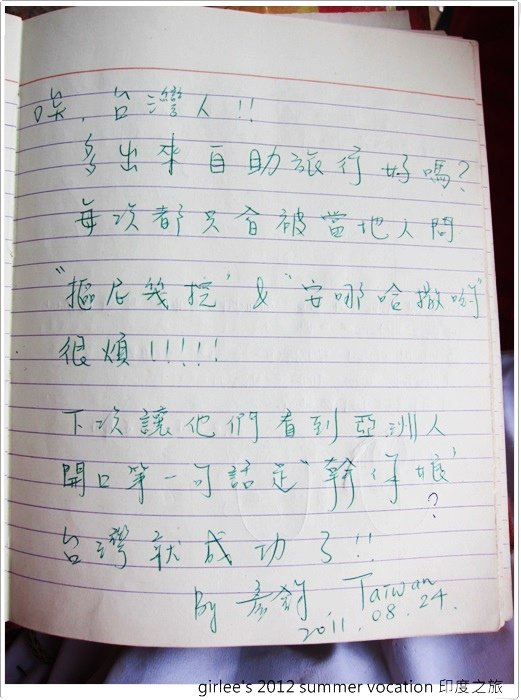 唉,台灣人!!
多出來自助旅行好嗎?
每次都只會被當地人問
"摳尼幾挖" & "安哪哈撒喲"
很煩!!!!!
下次讓他們看到亞洲人
開口第一句話是"幹你娘"
?
台灣就成功了!!
By Taiwan
2011.08.24.
girlee's 2012 summer vocation 印度之旅